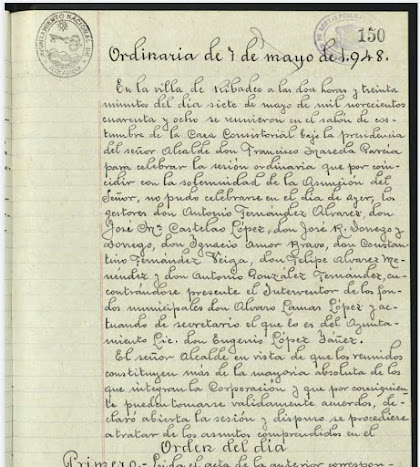 150
Ordinaria de 7 de mayo de 1.948.
En la villa de Ribadeo a las doce horas y treinta
minutos del día siete de mayo de mil novecientos
cuarenta y ocho se reunieron en el salón de cos-
tumbre de la Casa Consistorial bajo la presidencia
del señor Alcalde don Francisco Maseda Parcia
para celebrar la sesión ordinaria que por coin-
cidir con la solemnidad de la Asunción del
Señor, no pudo celebrarse en el día de ayer, los
gestores don Antonio Fernández Alvarez, don
José Mª Castelao López, don José R. Sonego y
Sonego, don Ignacio Amor Bravo, don Constan-
tino Fernández Veiga, don Felipe Alvarez Me-
néndez y don Antonio González Fernández, en-
contrándose presente el Interventor de los fon-
dos municipales don Alvaro Lamas López y ac-
tuando de secretario el que lo es del Ayunta-
miento Lic. don Eugenio López Yáñez.
El señor Alcalde en vista de que los reunidos
constituyen más de la mayoría absoluta de los
que integran la Corporación y que por consiguien-
te pueden tomarse válidamente acuerdos, de-
claró abierta la sesión y dispuso se procediere
a tratar de los asuntos comprendidos en el
Orden del día
Primero.- Leída el acta de la anterior correspon-